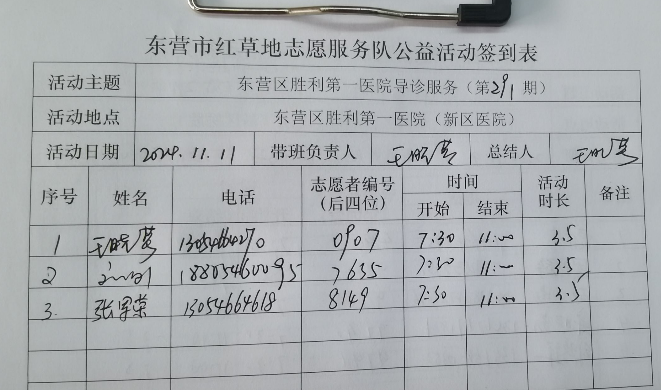 东营市红草地志愿服务队公益活动签到表
活动主题 东营区胜利第一医院导诊服务（第291期）
活动地点 东营区胜利第一医院（新区医院）
活动日期 2024.11.11 带班负责人 王晓英 总结人 王晓英
序号 姓名 电话 志愿者编号（后四位） 时间 开始 结束 活动时长 备注
1 王晓英 13054664270 0907 7:30 11:00 3.5
2 18805460095 7635 7:30 11:00 3.5
3. 张军荣 13054664618 8149 7:30 11:00 3.5